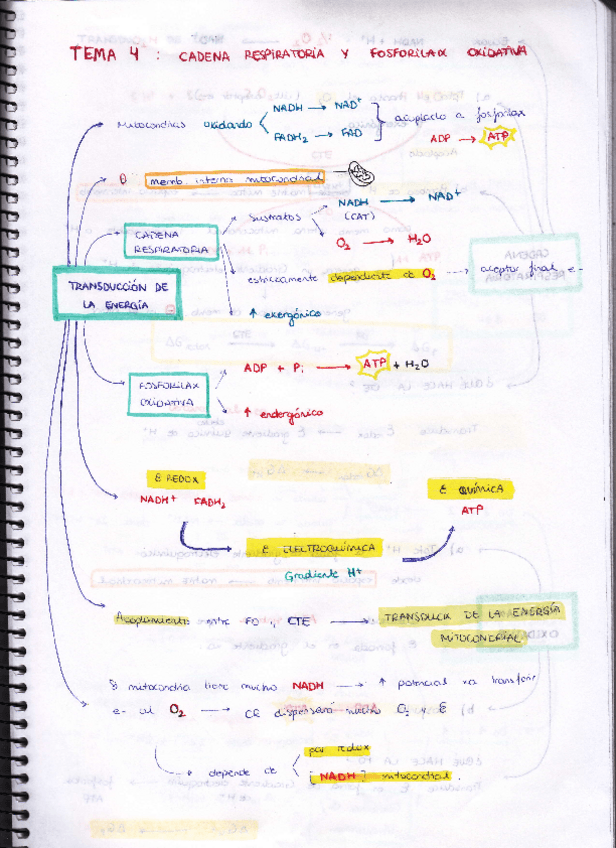 TEMA 4 : CADENA RESPIRATORIA Y FOSFORILAX OXIDATIVA
Mitocondrias oxidando
NADH → NAD+
FADH2 → FAD
acoplado a fosforilax
ADP → ATP
memb. interna mitocondrial
CADENA RESPIRATORIA
Sustratos
NADH → NAD+
(CAT)
O2 → H2O
estrictamente dependiente de O2 → aceptor final e-
↑ exergónico
TRANSDUCCIÓN DE LA ENERGÍA
FOSFORILAX OXIDATIVA
ADP + Pi → ATP + H2O
↑ endergónico
E REDOX
NADH+ FADH2
E ELECTROQUÍMICA
Gradiente H+
E QUÍMICA
ATP
Acoplamiento entre FO y CTE → TRANSDUCX DE LA ENERGÍA
MITOCONDRIAL
Si mitocondria tiene mucho NADH → ↑ potencial xa transferir
e- al O2 → CR dispensará mucho O2 y E
depende de
par redox
[NADH] mitocondrial.